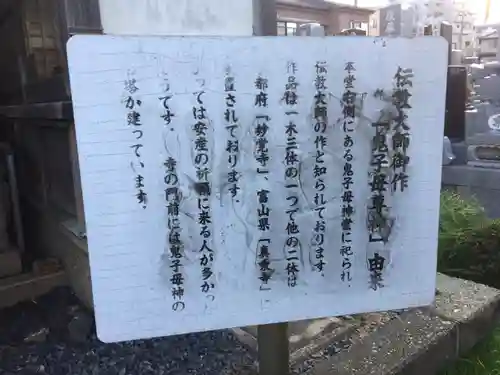 伝教大師御作
「鬼子母尊神」由来
本堂右側にある鬼子母神堂に祀られ
伝教大師の作と知られております。
作品様一木三体の一つで他の二体は
都府「妙覚寺」、富山県「真 寺」に
置されております。
っては安産の祈願に来る人が多かっ
そうです。寺の門前には鬼子母神の
塔が建っています。